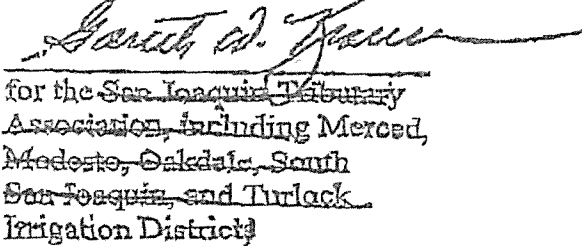 for the San Joaquin Tributary
Association, including Merced,
Modesto, Oakdale, South
San Joaquin, and Turlock
Irrigation Districts